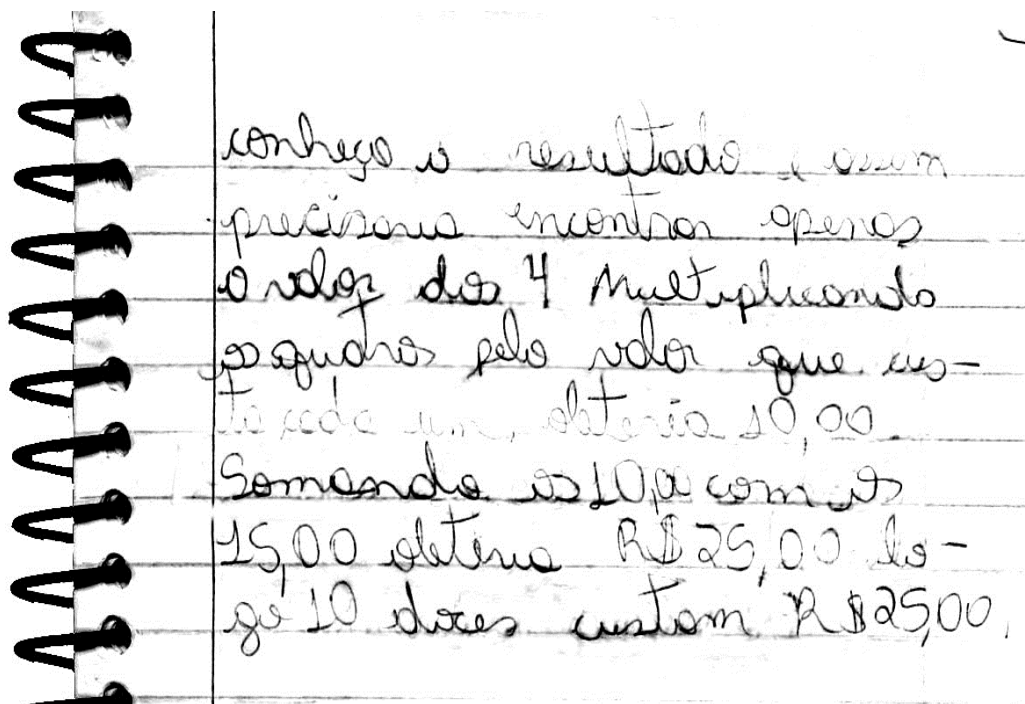 conheço o resultado e assim
precisaria encontrar apenas
o valor dos 4 Multiplicando
os quatros pelo valor que cus-
ta cada um, obteria 10,00.
Somando os 10,00 com os
15,00 obteria R$25,00 lo-
go 10 doces custam R$25,00.